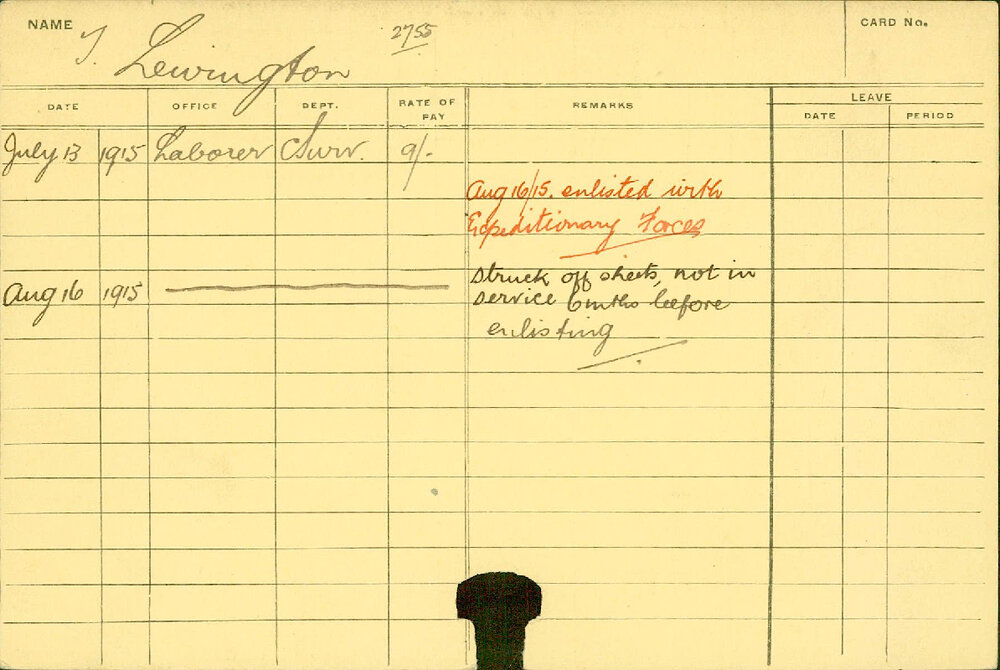 NAME T. Lewington 2755 CARD No.
DATE OFFICE DEPT. RATE OF PAY REMARKS LEAVE
DATE PERIOD
July 13 1915 Laborer Surv. 9/-
Aug 16/15. enlisted with
Expeditionary Forces
Aug 16 1915 struck off sheets, not in
service 6 mths before
enlisting